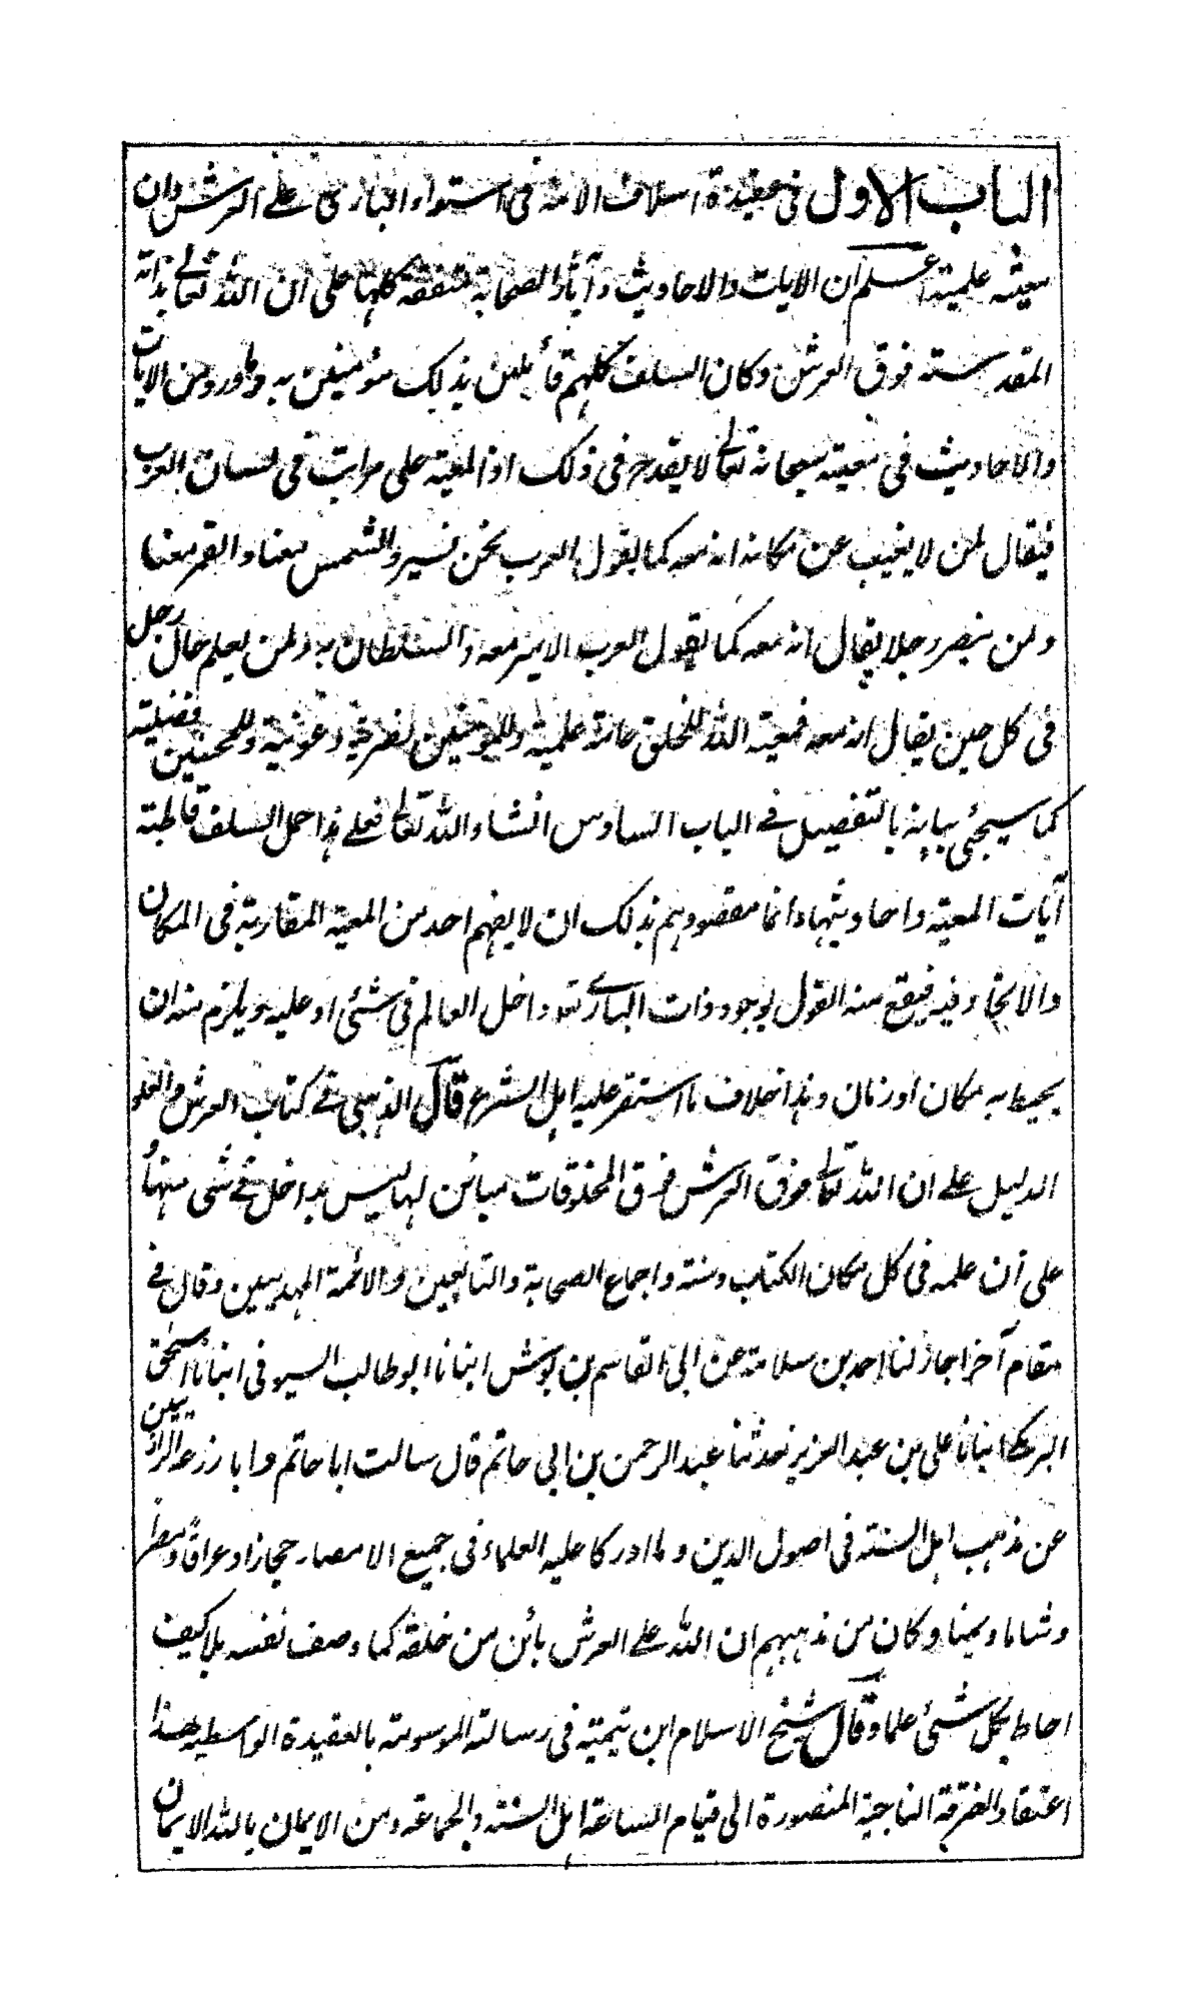 الباب الاول فى عقيدة اسلاف الامة فى استواء البارى على العرش وان
معيته علمية اعلم ان الايات والاحاديث وآثار الصحابة متفقة كلها على ان الله تعالى بذاته
المقدسته فوق العرش وكان السلف كلهم قائلين بذلك مؤمنين به وما ورد من الايات
والاحاديث فى معيته سبحانه تعالى لا يقدح فى ذلك اذ المعية على مراتب فى لسان العرب
فيقال لمن لا يغيب عن مكانه انه معه كما يقول العرب نحن نسير والشمس معنا والقمر معنا
ولمن ينصر رجلا يقال انه معه كما يقول العرب الامير معه والسلطان به ولمن يعلم حال رجل
فى كل حين يقال انه معه فمعية الله للخلق عامة علمية وللمؤمنين نصرية وعونية وللمحسنين فضلية
كما سيجئ بيانه بالتفصيل فى الباب السادس انشاء الله تعالى فعلى هذا حمل السلف قاطبة
آيات المعية واحاديثها وانما مقصودهم بذلك ان لا يفهم احد من المعية المقاربة فى المكان
والاتحاد فيه فيقع منه القول بوجود ذات البارى تعه داخل العالم فى شئ او عليه ويلزم منه ان
يحيط به مكان او زمان وهذا خلاف ما استقر عليه اهل الشرع قال الذهبى فى كتاب العرش والعلو
الدليل على ان الله تعالى فوق العرش فوق المخلوقات مبائن لها ليس بداخل فى شئ منها و
على ان علمه فى كل مكان الكتاب وسنته واجماع الصحابة والتابعين والائمة المهديين وقال فى
مقام آخر اجاز لنا احمد بن سلامة عن ابى القاسم بن بوش انبانا ابو طالب اليوسفى انبانا اسحق
البرمكى انبانا على بن عبد العزيز نحدثنا عبد الرحمن بن ابى حاتم قال سالت ابا حاتم وابا زرعه الرازيين
عن مذهب اهل السنة فى اصول الدين وما ادركا عليه العلماء فى جميع الامصار حجازا وعراقا ومصر
وشاما ويمنا وكان من مذهبهم ان الله على العرش بائن من خلقه كما وصف نفسه بلا كيف
احاط بكل شئ علما وقال شيخ الاسلام ابن تيمية فى رسالته الموسومته بالعقيدة الواسطية هذا
اعتقاد الفرقة الناجية المنصورة الى قيام الساعة اهل السنة والجماعة ومن الايمان بالله الايمان